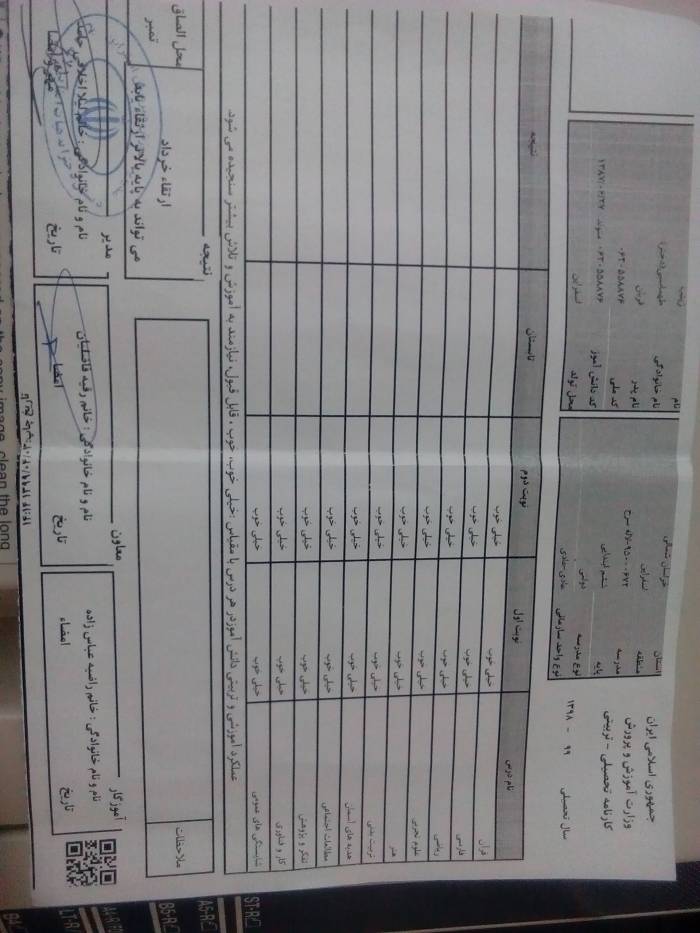 جمهوری اسلامی ایران
وزارت آموزش و پرورش
کارنامه تحصیلی - تربیتی
سال تحصیلی ۹۹ - ۱۳۹۸
استان خراسان شمالی
منطقه اسفراین
مدرسه
پایه ششم ابتدایی
نوع مدرسه دولتی
نوع واحد سازمانی عادی
نام زینب
نام خانوادگی
نام پدر قربان
کد ملی
کد دانش آموز
محل تولد اسفراین
نام درس نوبت اول نوبت دوم تابستان نتیجه
قرآن خیلی خوب خیلی خوب
فارسی خیلی خوب خیلی خوب
ریاضی خیلی خوب خیلی خوب
علوم تجربی خیلی خوب خیلی خوب
هنر خیلی خوب خیلی خوب
تربیت بدنی خیلی خوب خیلی خوب
هدیه های آسمان خیلی خوب خیلی خوب
مطالعات اجتماعی خیلی خوب خیلی خوب
تفکر و پژوهش خیلی خوب خیلی خوب
کار و فناوری خیلی خوب خیلی خوب
شایستگی های عمومی خیلی خوب خیلی خوب
عملکرد آموزشی و تربیتی دانش آموز در هر درس با مقیاس :خیلی خوب، خوب ، قابل قبول، نیازمند به آموزش و تلاش بیشتر سنجیده می شود.
ملاحظات
نتیجه
ارتقاء خرداد
می تواند به پایه بالاتر ارتقاء یابد.
محل الصاق تمبر
آموزگار
نام و نام خانوادگی : خانم راضیه عباس زاده
امضاء
تاریخ
معاون
نام و نام خانوادگی : خانم رقیه فاضلیان
امضاء
تاریخ
مدیر
نام و نام خانوادگی : خانم لیلا اخلاقی
مهر و امضا
تاریخ
ST-R
A5-R
B5-R
LT-R
B4
the copy image, clean the long